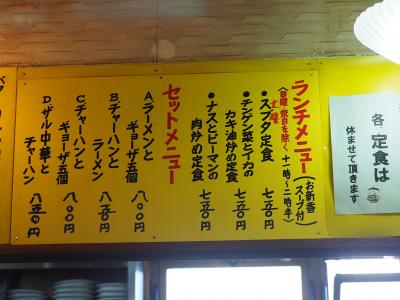 各
定食は
休ませて頂きます
ランチメニュー
(お新香
スープ付)
(日曜・祭日を除く 十一時〜二時半)
・スブタ定食 七五〇円
・チンゲン菜とイカの
カキ油炒め定食 七五〇円
・ナスとピーマンの
肉炒め定食 七五〇円
セットメニュー
A ラーメンと
ギョーザ五個 八〇〇円
B チャーハンと
ラーメン 八五〇円
C チャーハンと
ギョーザ五個 八〇〇円
D ザル中華と
チャーハン 八五〇円